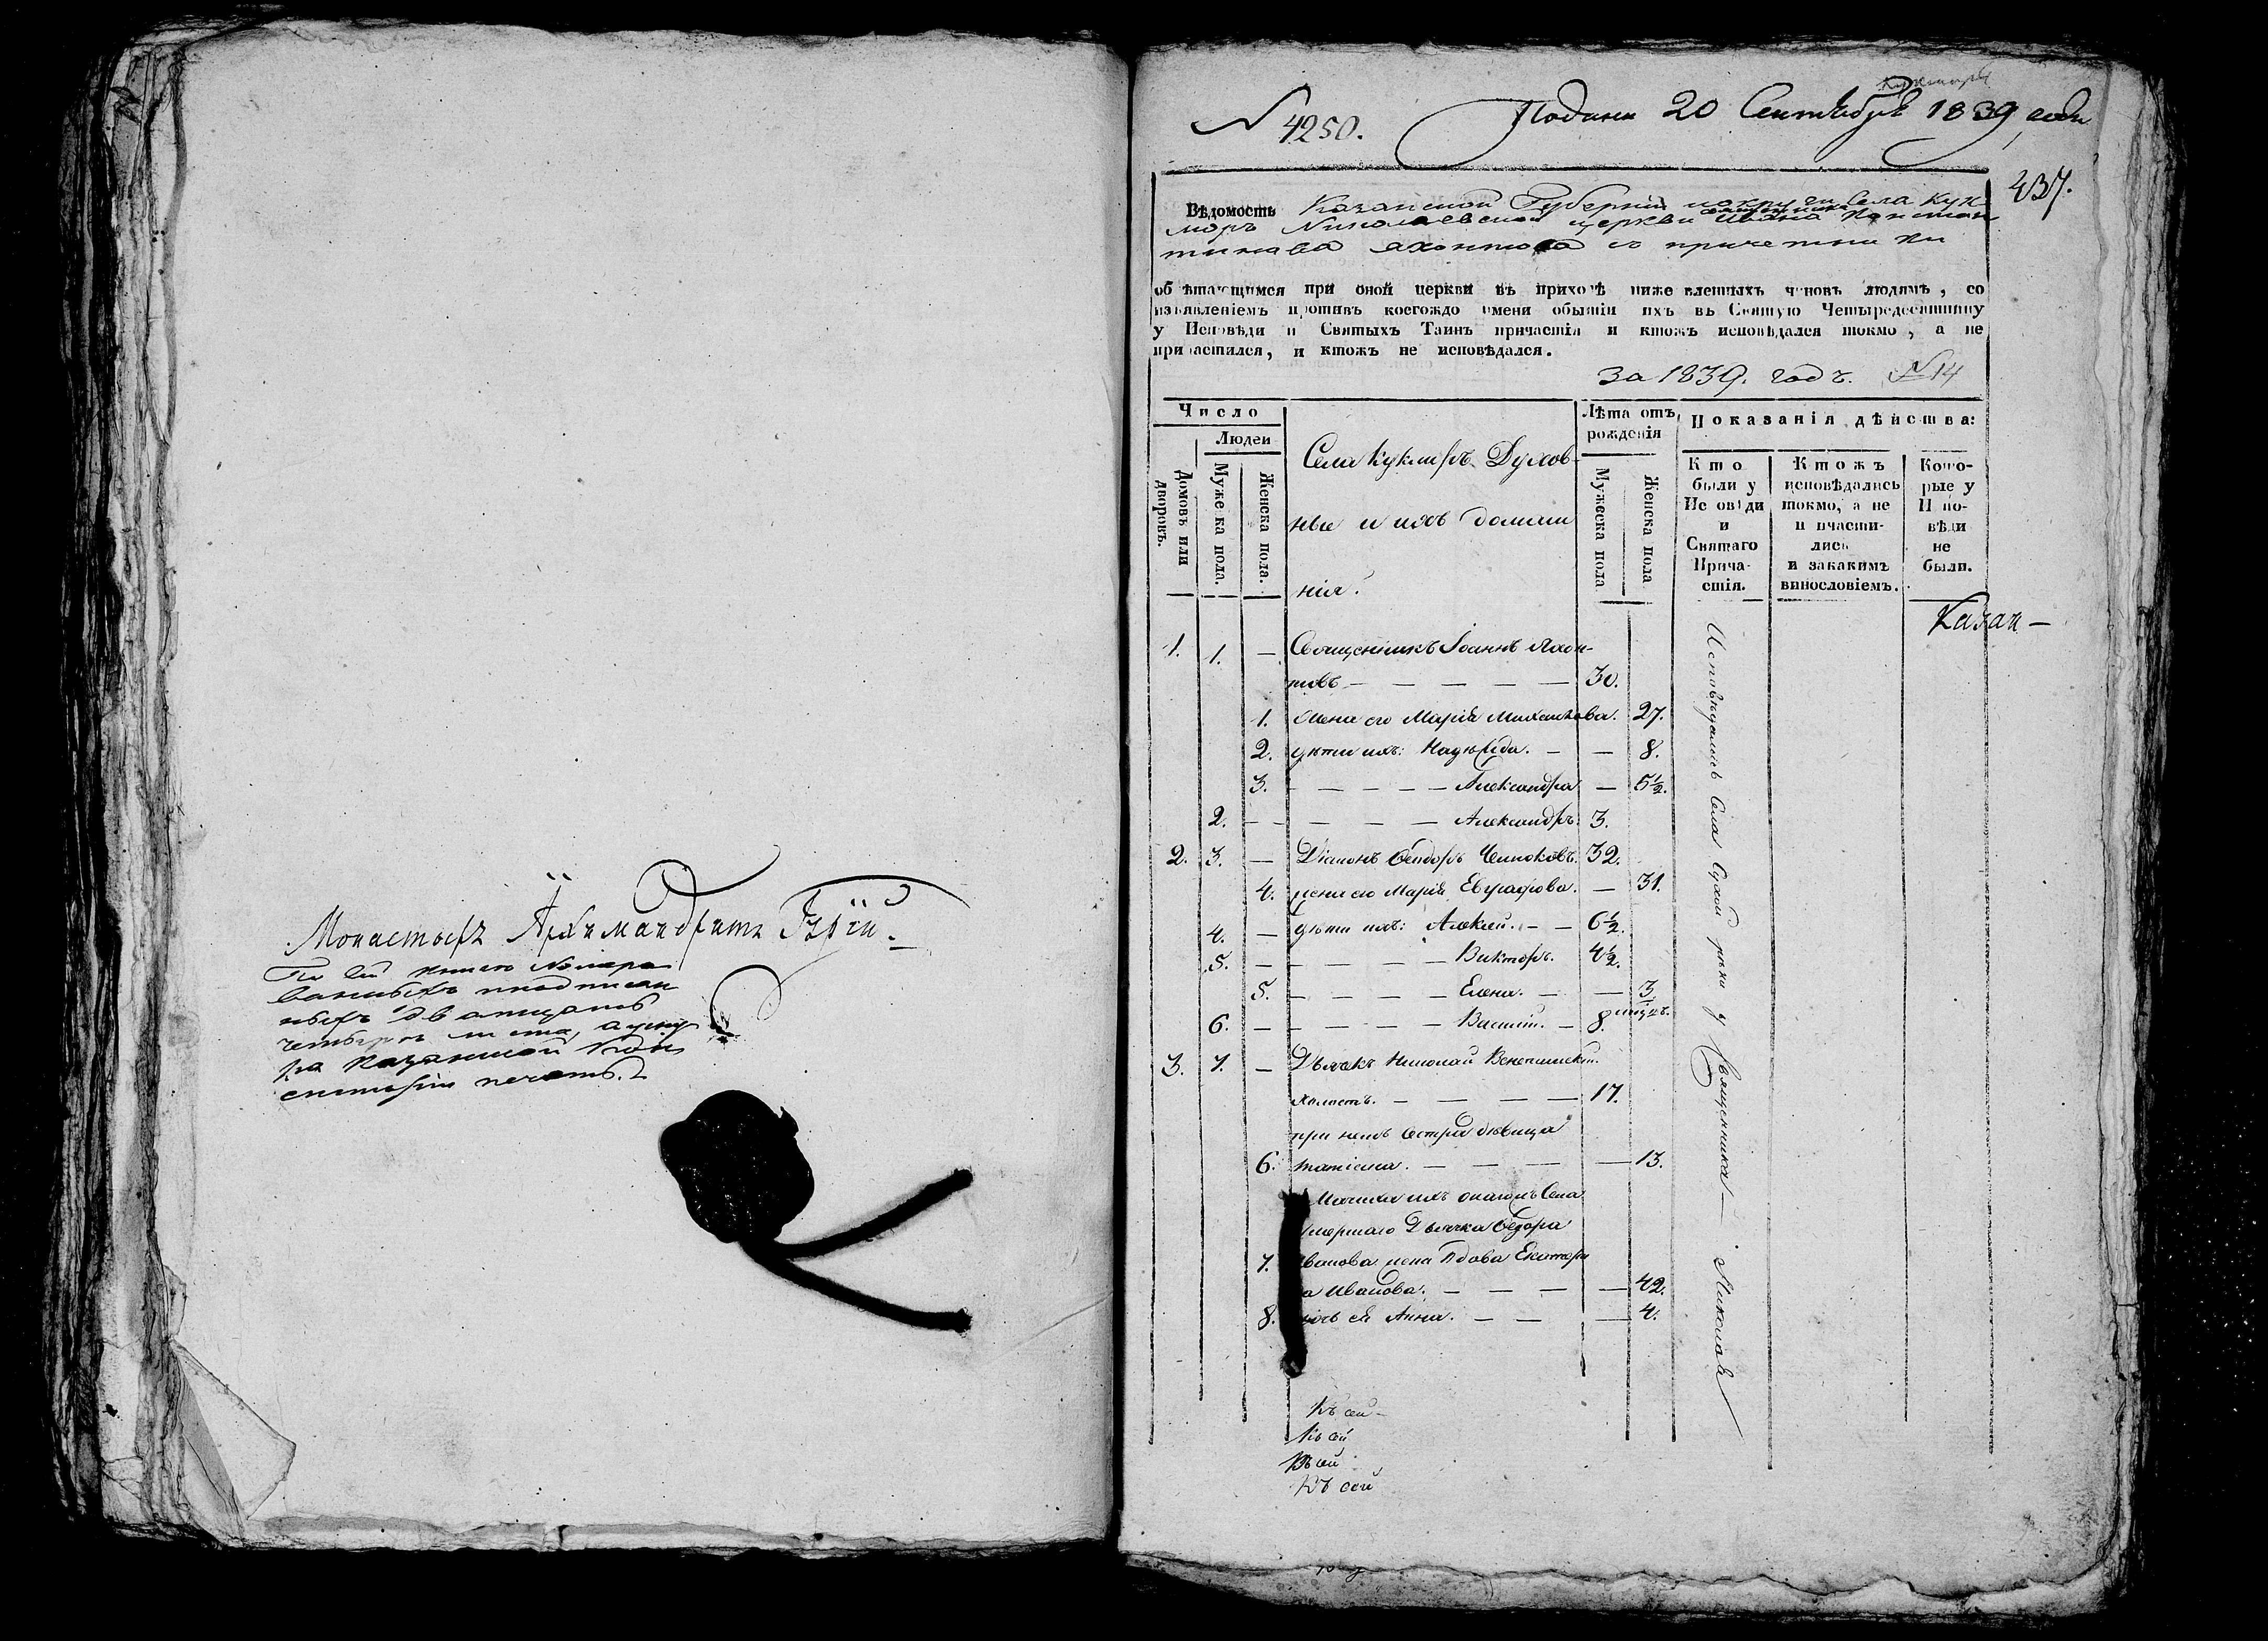 Монастырь Архимандритъ Гурїй.
По сей книге Номеро
ванныхъ и подписан
ныхъ двадцать
четыре листа, а у сну
ра Казанской Кон
систоріи печать.
Кукморъ
N 4250.
Подана 20 Сентября 1839 года
437.
Вѣдомость Казанской Губерніи округи Села Кук
моръ Николаевской церкви священника Ивана Констан
тинова Яхонтова съ причетники
обрѣтающимся при оной церкви въ приходѣ нижеявленныхъ чиновъ людямъ, со
изъявленіемъ противъ коегождо имени о бытіи ихъ въ Святую Четыредесятницу
у Исповѣди и Святыхъ Таинъ причастія и ктожъ исповѣдался токмо, а не
причастился, и ктожъ не исповѣдался.
за 1839. годъ. № 14
Число
Людей
Домовъ или дворовъ.
Мужеска пола.
Женска пола.
Села Кукморъ Духов-
ные и ихъ домаш
нія.
Лѣта отъ
рожденія
Мужеска пола
Женска пола
Показанія дѣйства:
Кто
были у
Исповѣди
и
Святаго
Прича-
стія.
Ктожъ
исповѣдались
токмо, а не
причасти-
лись
и закакимъ
винословіемъ.
Кото-
рые у
Испо-
вѣди
не
были.
Казан—
1. 1. — Священникъ Іоаннъ Яхон-
товъ — — — — — 30.
1. Жена его Марія Михайлова. 27.
2. дѣти ихъ: Надежда. — — 8.
3. — — — — Александра — 5½.
2. — — — — Александръ. 3.
2. 3. — Діаконъ Ѳеодоръ Чемоковъ. 32.
4. жена его Марія Евграфова. — 31.
4. — дѣти ихъ: Алексей. — — 6½.
5. — — — — Викторъ. 4½.
5. — — — — Елена. — — 3
6. — — — — Василій. — 8. месяц.
3. 7. — Дьячекъ Николай
холостъ. — — — — 17.
при немъ сестра девица
6. Татіана. — — — — 13.
Мачиха ихъ онагожъ Села
умершаго Дьячка Ѳедора
7. Иванова жена вдова Екатери
на Иванова. — — — — 42.
8. дочь ея Анна. — — — 4.
Исповѣдались Села Сухой реки у Священника — Николая
Къ сей
Къ сей
Къ сей
Къ сей